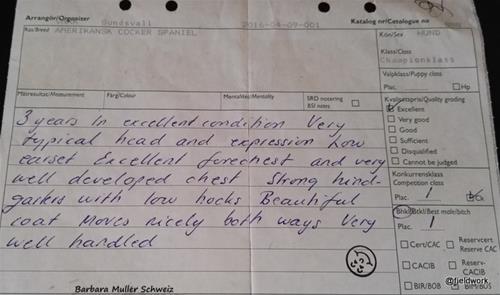 Arrangör/Organizer
SKK Sundsvall
2016-04-09-001
Katalog nr/Catalogue no
Ras/Breed AMERIKANSK COCKER SPANIEL
Kön/Sex HUND
Klass/Class
Championklass
Valpklass/Puppy class
Plac. Hp
Mätresultat/Measurement
Färg/Colour
Mentalitet/Mentality
SRD notering
BSI notes
Kvalitetspris/Quality grading
Excellent
Very good
Good
Sufficient
Disqualified
Cannot be judged
3 years In excellent condition Very
typical head and expression Low
earset Excellent forechest and very
well developed chest Strong hind-
garters with low hocks Beautiful
coat Moves nicely both ways Very
well handled
Konkurrensklass
Competition class
Plac. 1 Ck
Bhkl/Btkl/Best male/bitch
Plac. 1
Cert/CAC
Reservcert
Reserve CAC
CACIB
Reserv-
CACIB
BIR/BOB
BIM/BOS
Barbara Muller Schweiz
@fjeldwork